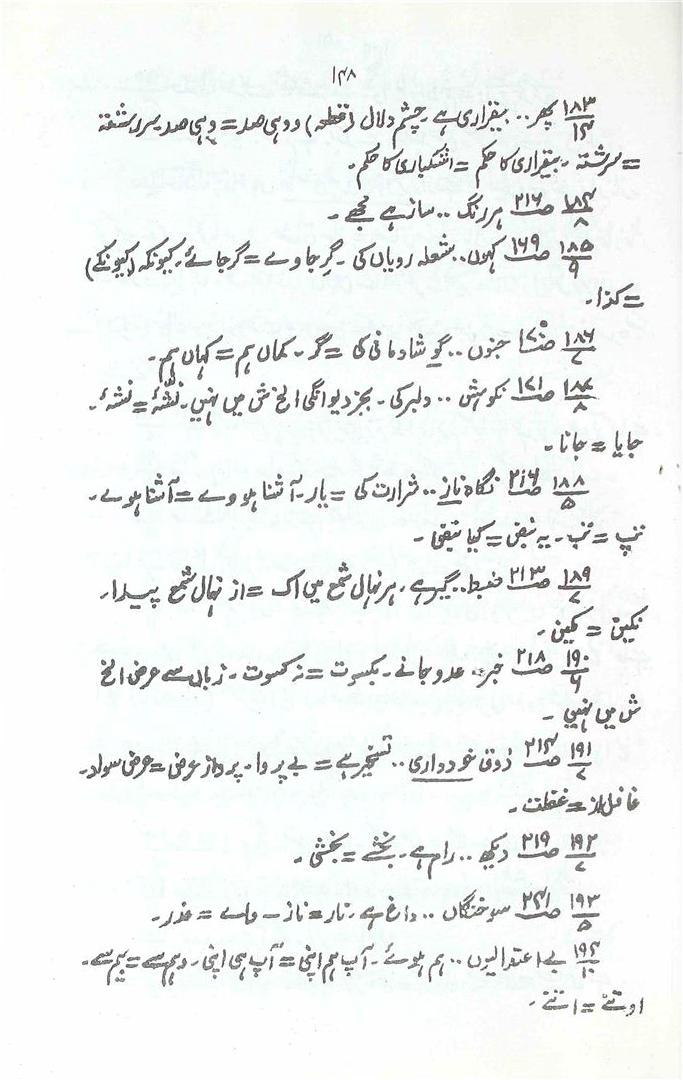 ۱۴۸
۱۸۳/۱۴ پھر .. بیقراری ہے ۔ چشم دلال (قطعہ) و وہی صد = وہی صد سررشتہ
= سرشتہ ۔ بیقراری کا حکم = اشکباری کا حکم ۔
۱۸۴/۸ ص ۲۱۶ ہر رنگ .. ساز ہے مجھے ۔
۱۸۵/۹ ص ۱۶۹ کہوں .. شعلہ رویاں کی ۔ گر جاوے = گر جائے ۔ کیونکہ (کیونکے)
= کذا ۔
۱۸۶/۷ ص ۱۷۰ جنوں .. گو شادمانی کی = گر ۔ کماں ہم = کہاں ہم ۔
۱۸۷/۸ ص ۱۷۱ نکوہش .. دلبر کی ۔ بجز دیوانگی الخ ش میں نہیں ۔ نشۂ = نشہ ۔
جایا = جانا ۔
۱۸۸/۵ ص ۲۱۶ نگاہ ناز .. شرارت کی = یار ۔ آشنا ہووے = آشنا ہوے ۔
تپ = تب ۔ یہ نبض = کیا نبض ۔
۱۸۹/۷ ص ۲۱۳ ضبط .. گیر ہے ۔ ہر نہال شمع میں اک = از نہال شمع پیدا ۔
نکین = کمین ۔
۱۹۰/۶ ص ۲۱۸ خبر .. عدو جانے ۔ بکسوت = نہ کسوت ۔ زباں سے عرض الخ
ش میں نہیں ۔
۱۹۱/۷ ص ۲۱۴ ذوق خودداری .. تسخیر ہے = بے پروا ۔ پرداز عرض = عرض سواد ۔
غافل از = غفلت ۔
۱۹۲/۷ ص ۲۱۹ دیکھ .. رام ہے ۔ بخشے = بخشی ۔
۱۹۳/۵ ص ۲۴۱ سوختگاں .. داغ ہے ۔ نار = ناز ۔ واے = عذر ۔
۱۹۴/۱۰ بے اعتدالیوں .. ہم ہوئے ۔ آپ ہم اپنی = آپ ہی اپنی ۔ وہم سے = ہم سے ۔
اوتنے = اتنے ۔